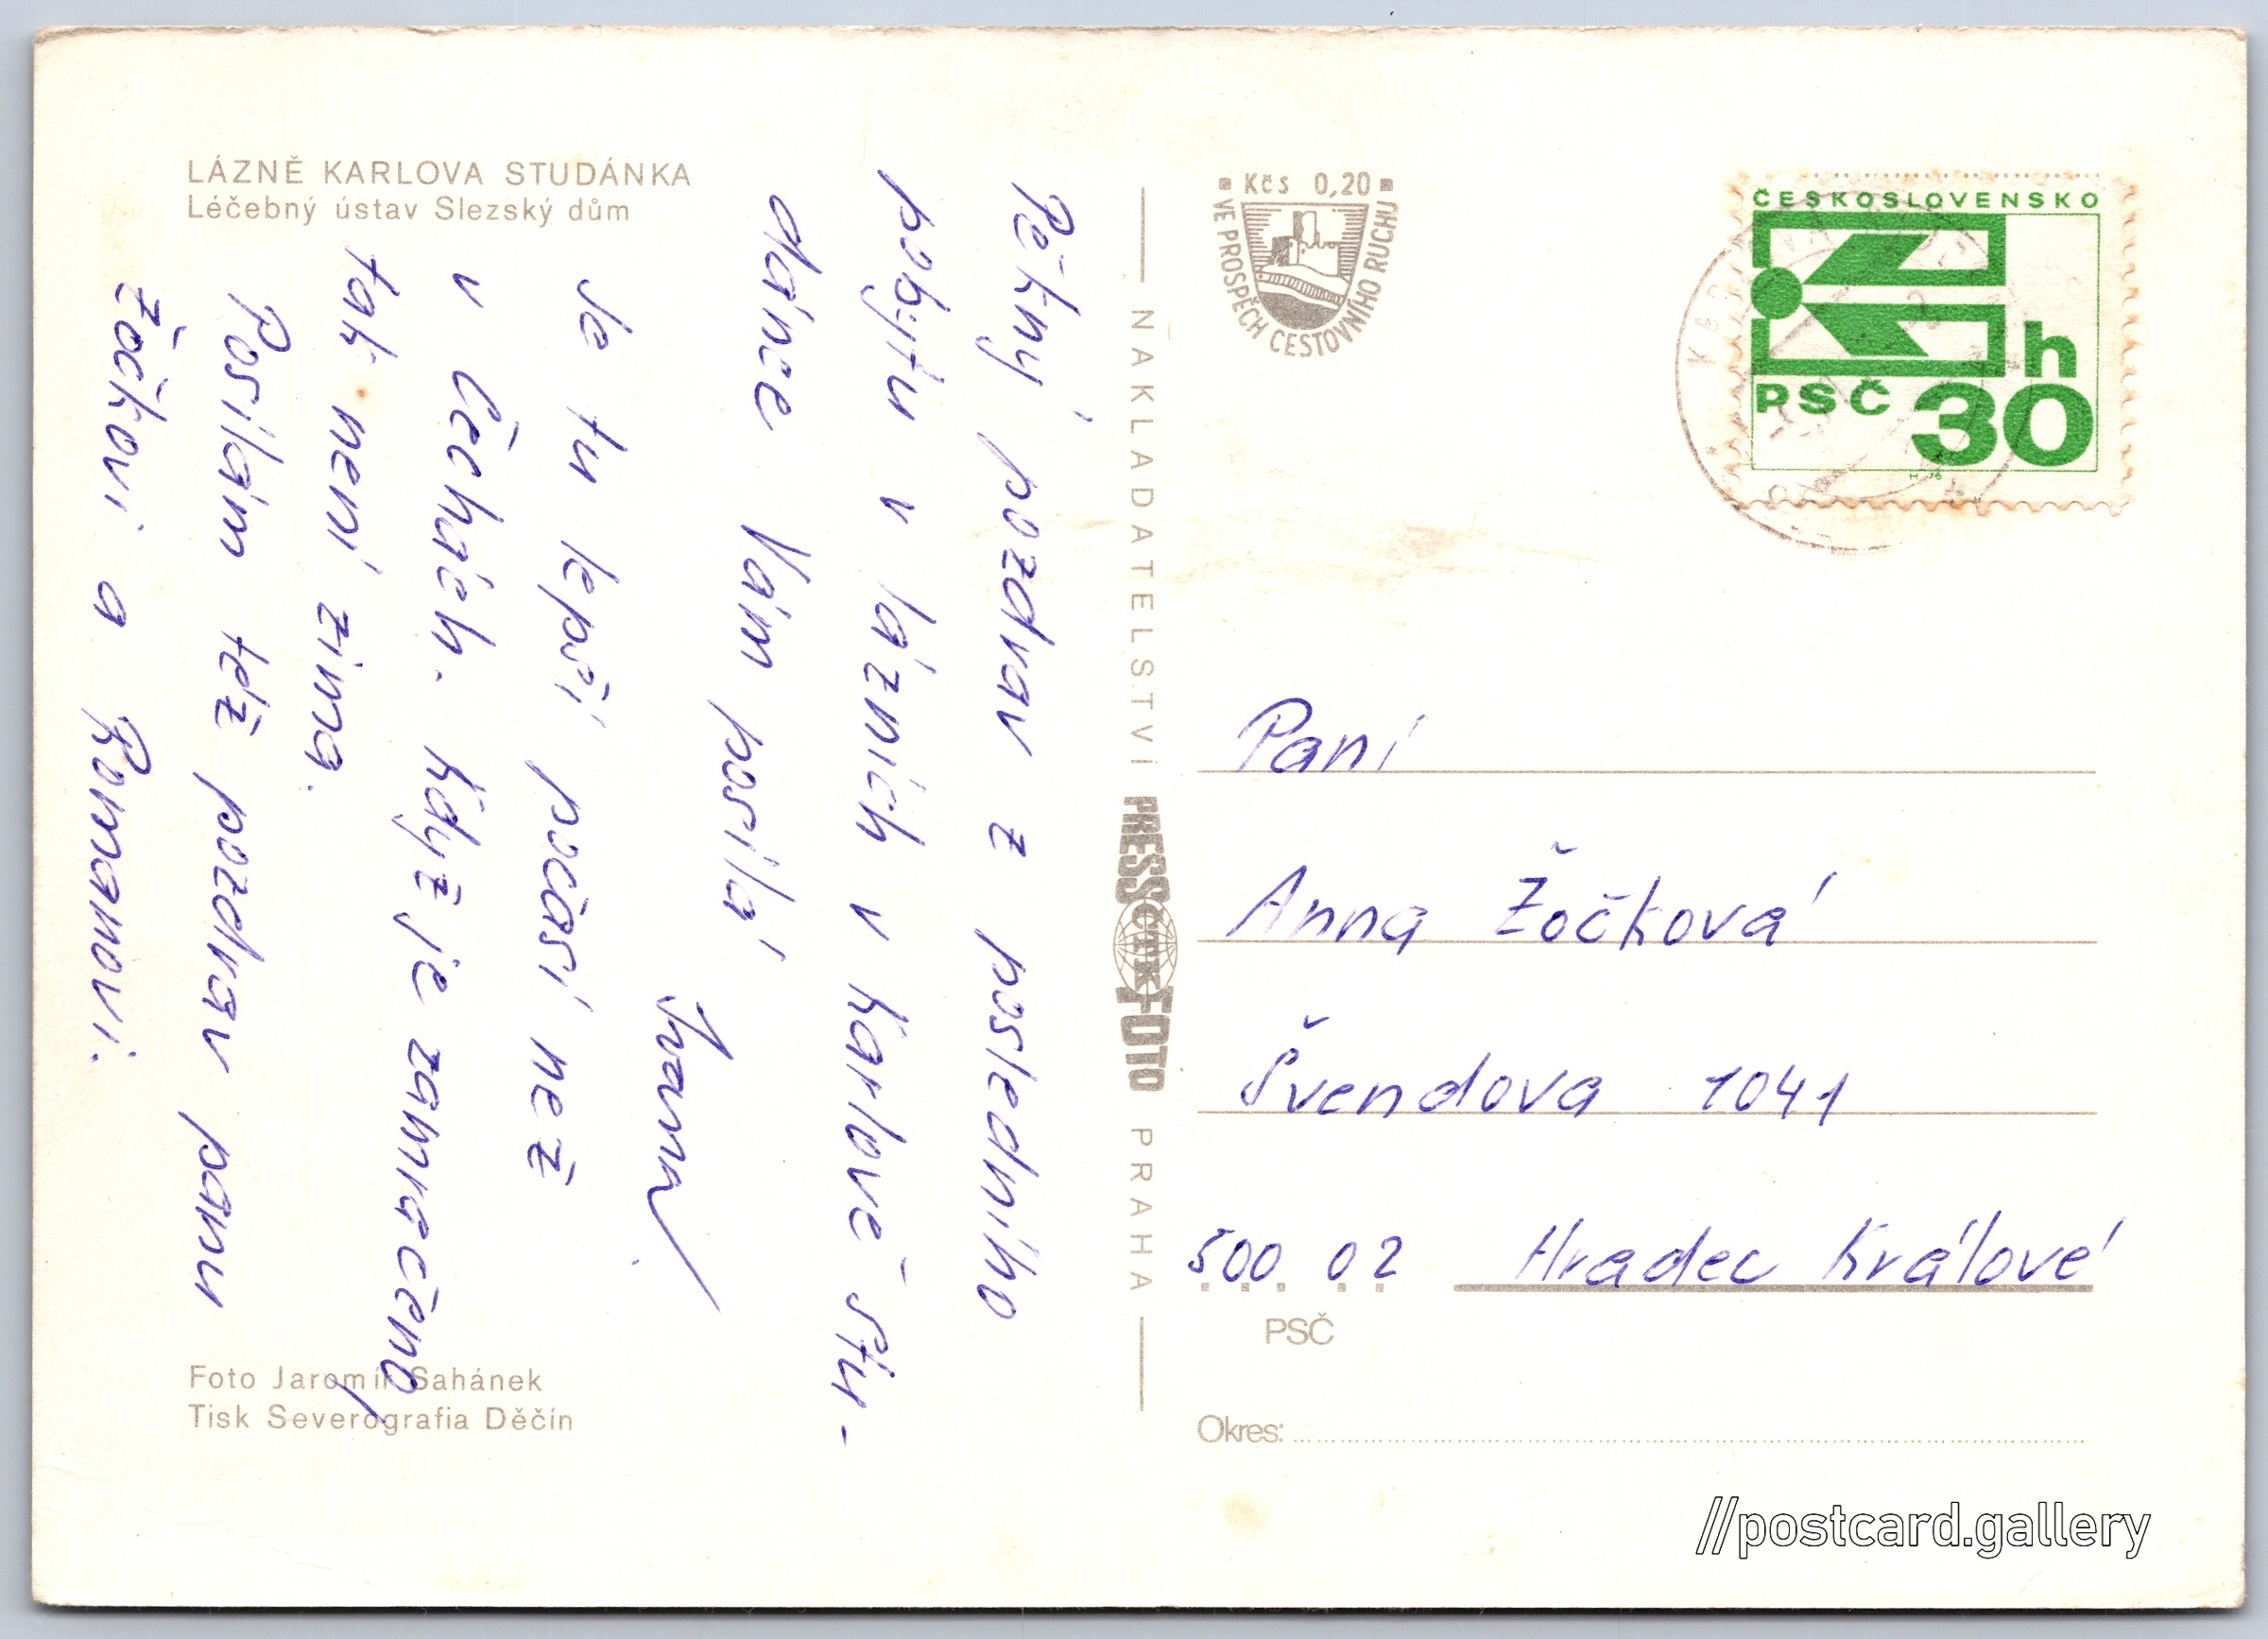 LÁZNĚ KARLOVA STUDÁNKA
Léčebný ústav Slezský dům
Pěkný pozdrav z posledního
pobytu v lázních v Karlově Stu-
dánce Vám posílá
Ivana
Je tu lepší počasí než
v Čechách. Když je zamračeno,
tak není zima.
Posílám též pozdrav panu
Žočkovi a Romanovi.
Foto Jaromír Sahánek
Tisk Severografia Děčín
NAKLADATELSTVÍ PRESSFOTO PRAHA
ČTK
Kčs 0,20
VE PROSPĚCH CESTOVNÍHO RUCHU
ČESKOSLOVENSKO
h
PSČ 30
Paní
Anna Žočková
Švendova 1041
500 02 Hradec Králové
PSČ
Okres:
//postcard.gallery